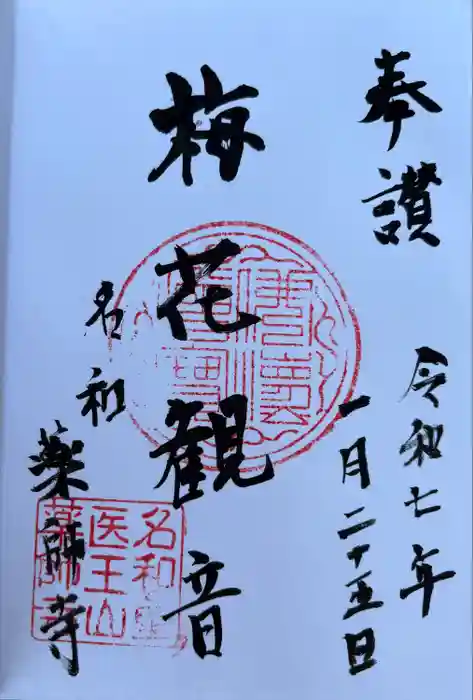 奉讃
令和七年
一月二十五日
梅花観音
名和
薬師寺
名和
医王山
薬師寺